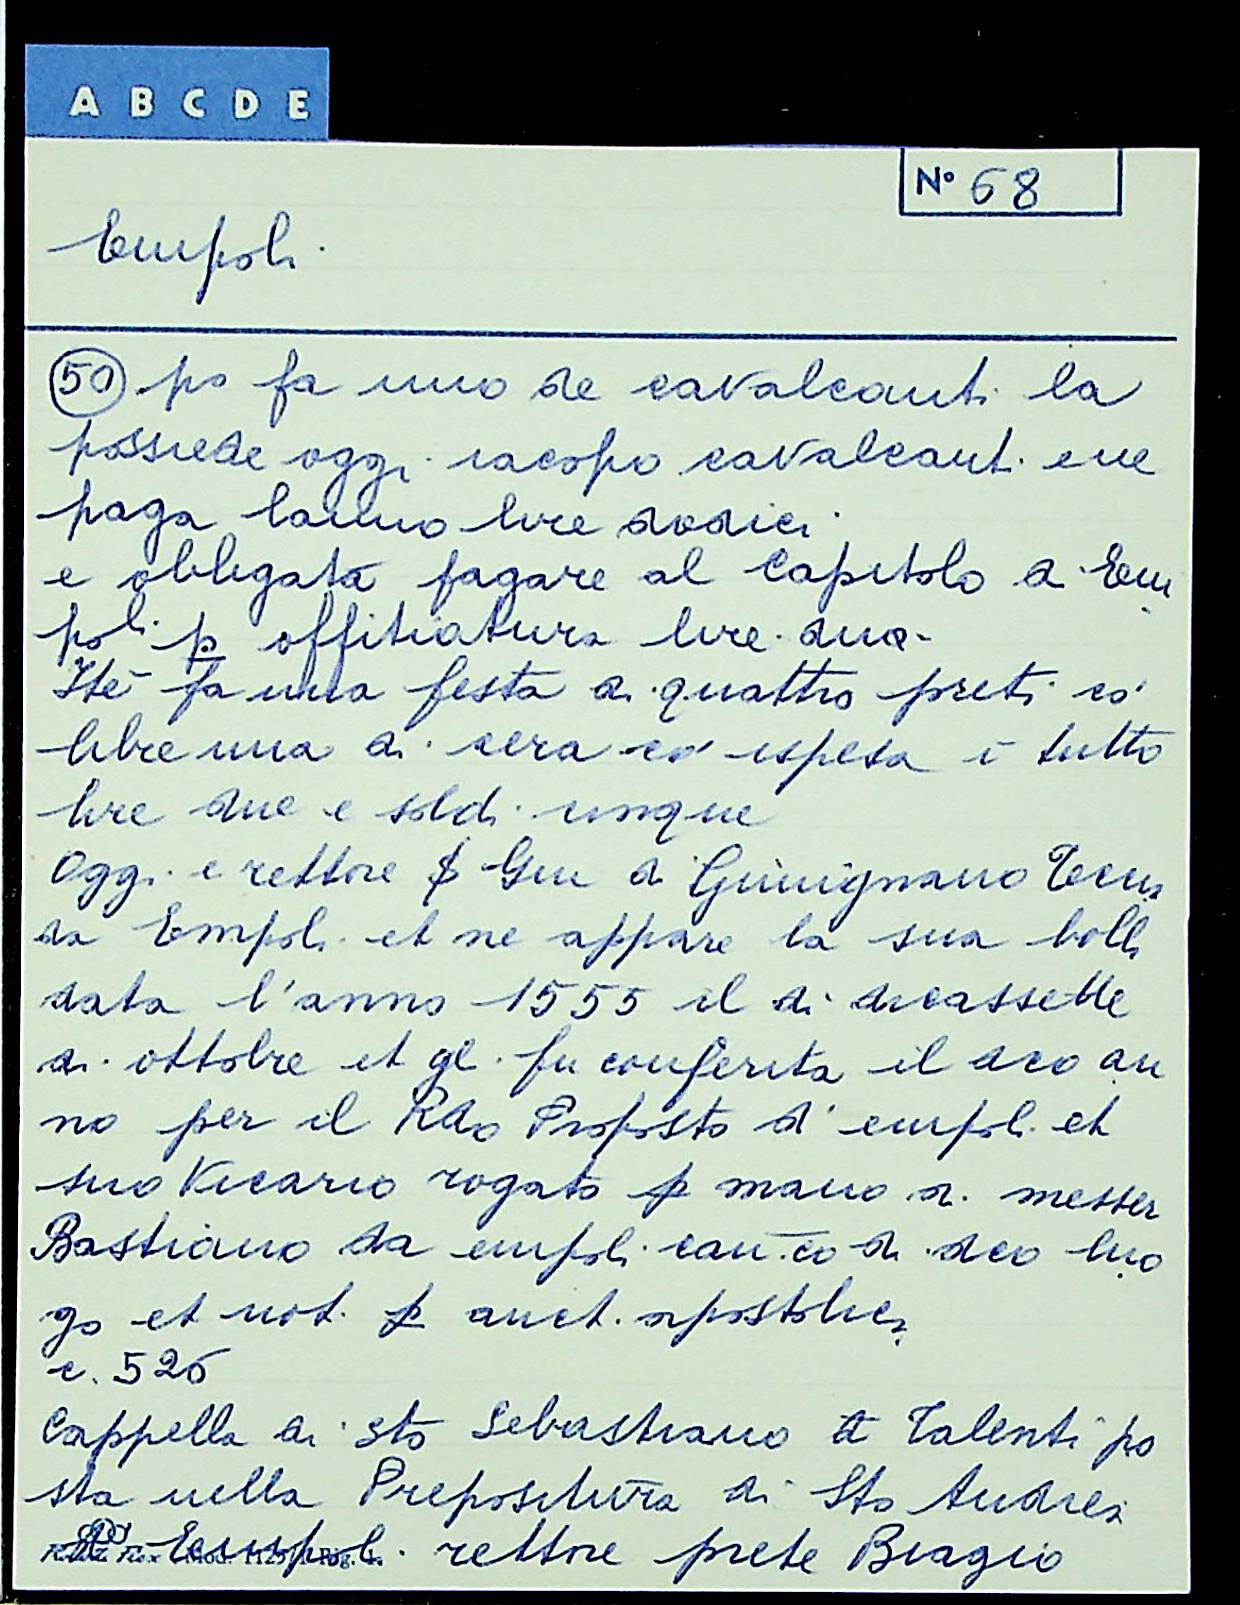 A B C D E
N° 68
Empoli.
50 po fa uno de cavalcanti la
possiede oggi iacopo cavalcanti ene
paga lanno lire dodici.
e obbligata pagare al Capitolo d Em
poli p offitiatura lire due
Ite fa una festa di quattro preti co
libre una di cera co ispesa i tutto
lire due e soldi cinque
Oggi e rettore di Gimignano
da Empoli et ne appare la sua
data l'anno 1555 il di dicassette
di ottobre et gl. fu conferita il dco an
no per il Rdo Proposto d'empoli et
suo Vicario rogato p mano di messer
Bastiano da empoli can.co di dco luo
go et not. p auct. apostolica
c. 526
Cappella di sto Sebastiano Talenti po
sta nella Prepositura di Sto Andrea
Empoli. rettore prete Biagio